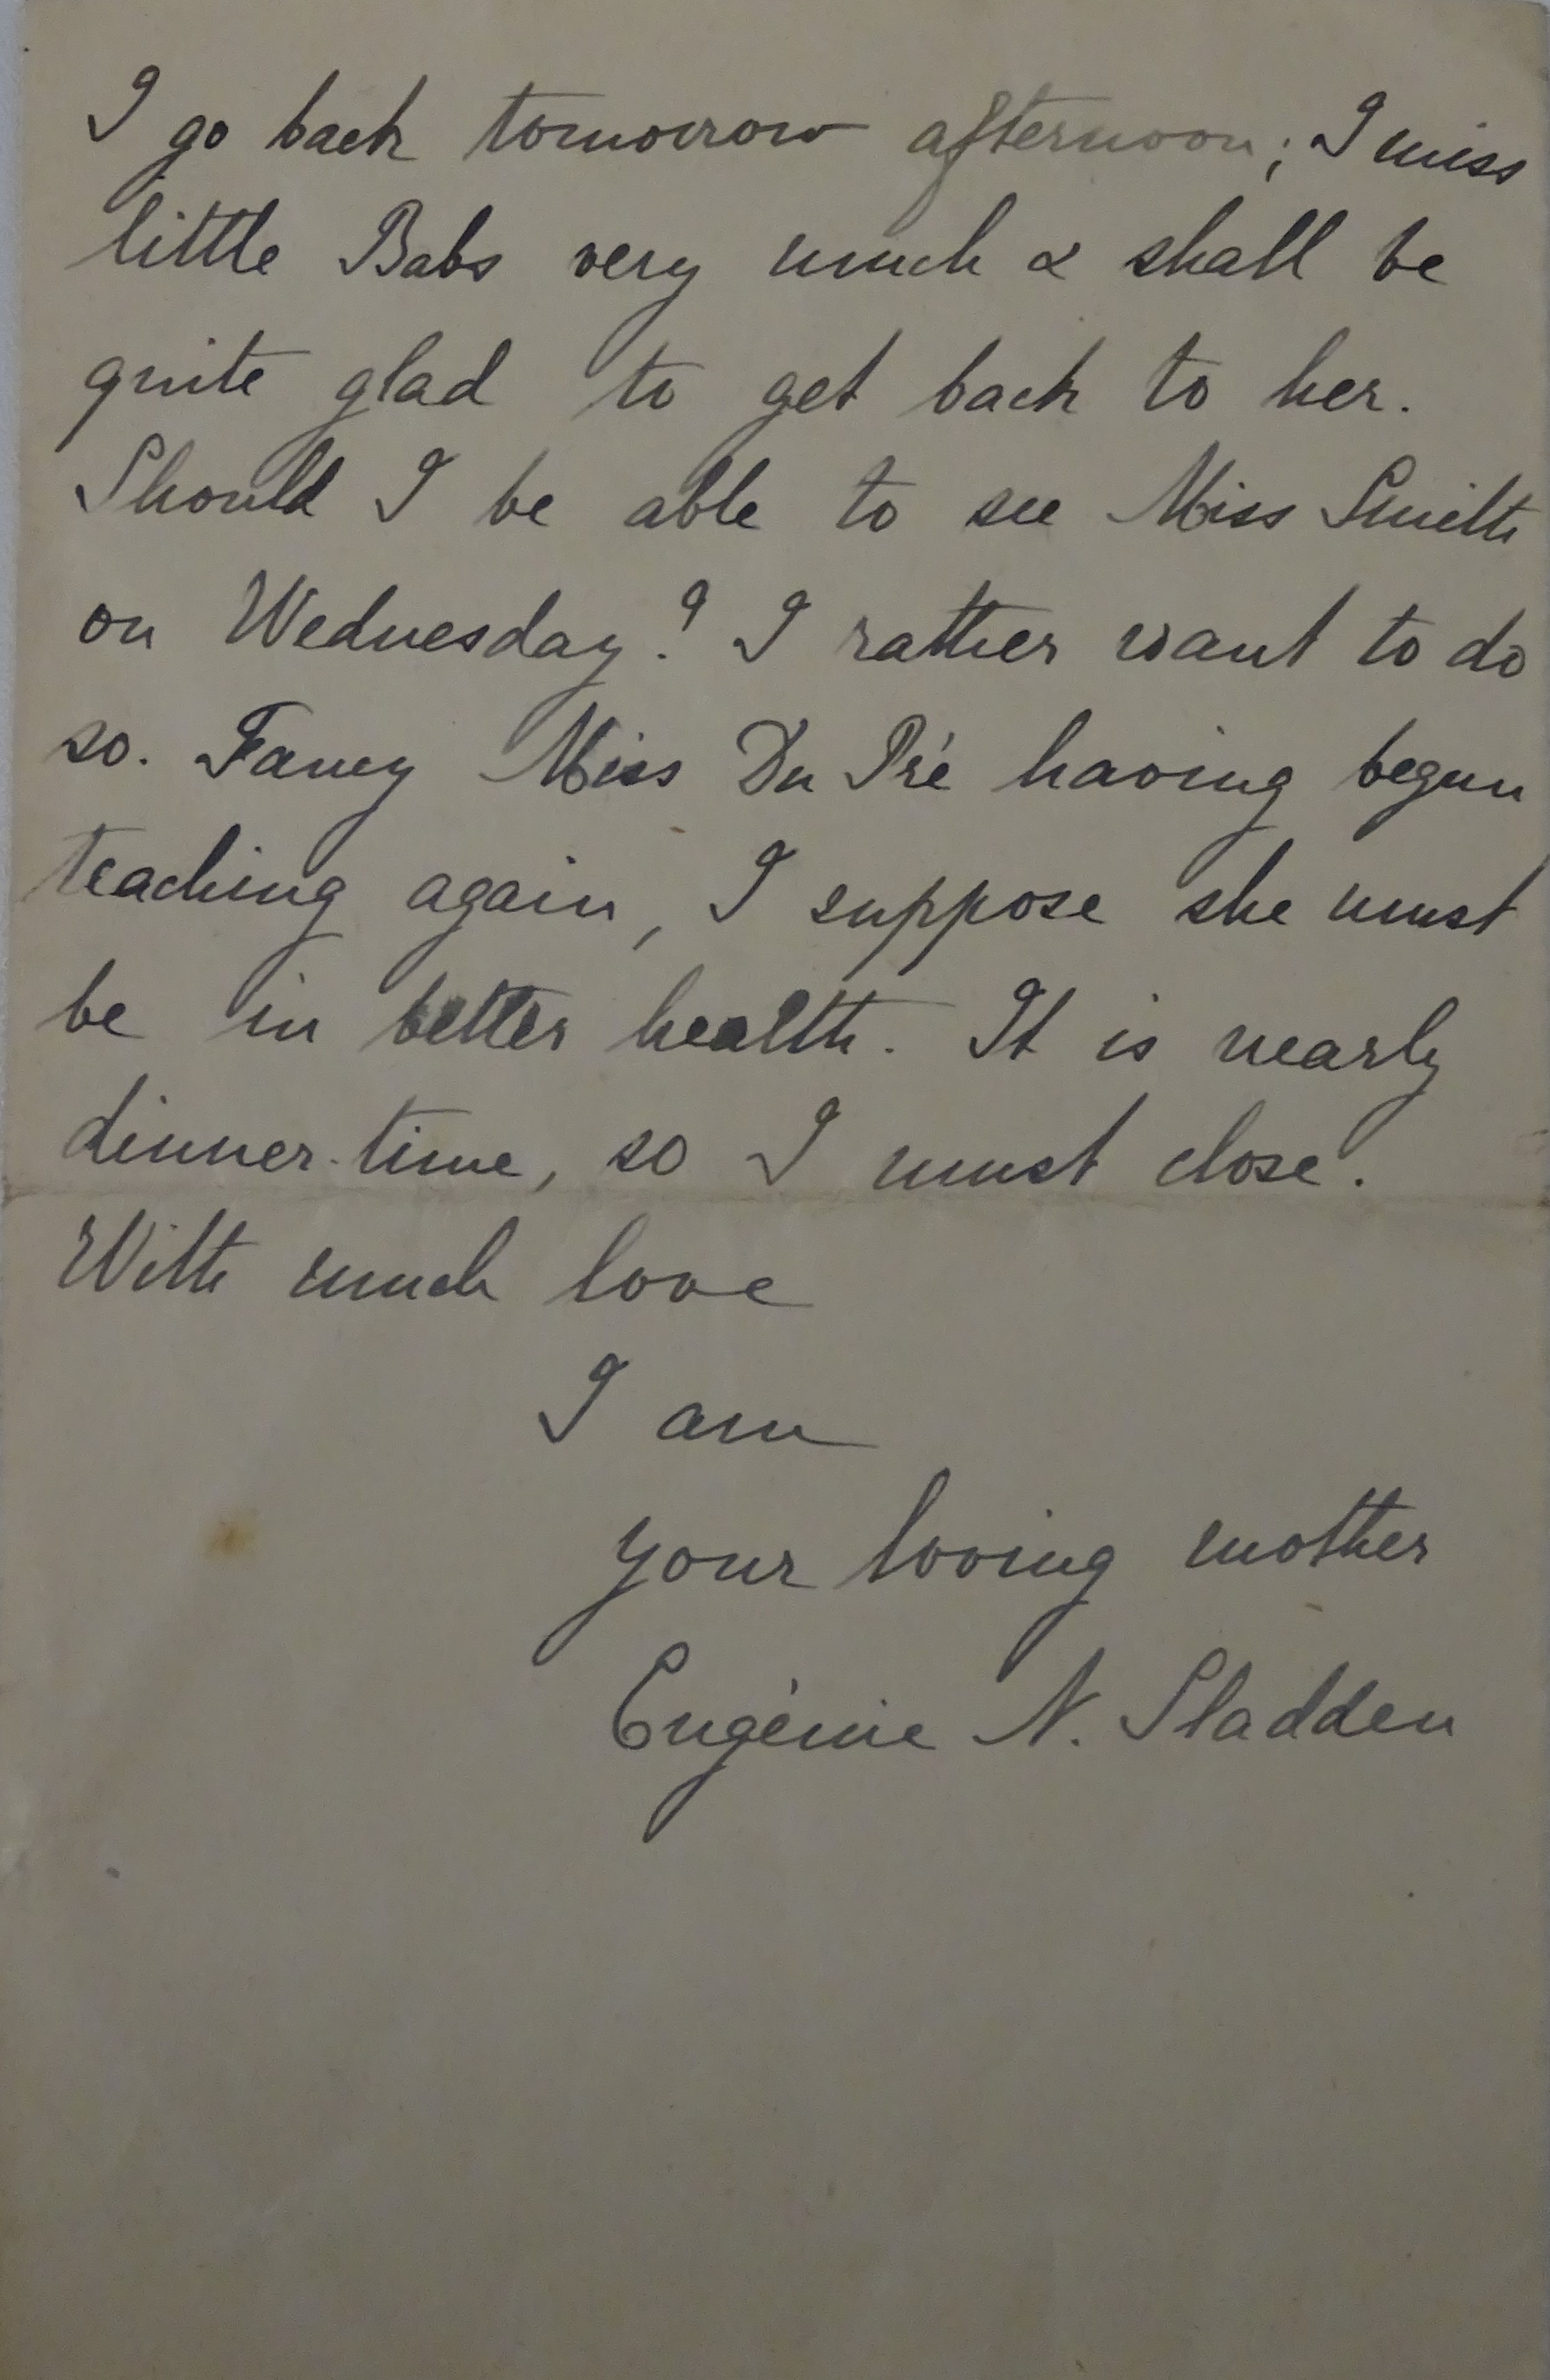 I go back tomorrow afternoon; I miss
little Babs very much & shall be
quite glad to get back to her.
Should I be able to see Miss Smith
on Wednesday? I rather want to do
so. Fancy Miss Du Pré having begun
teaching again, I suppose she must
be in better health. It is nearly
dinner-time, so I must close.
With much love
I am
your loving mother
Eugénie N. Sladden